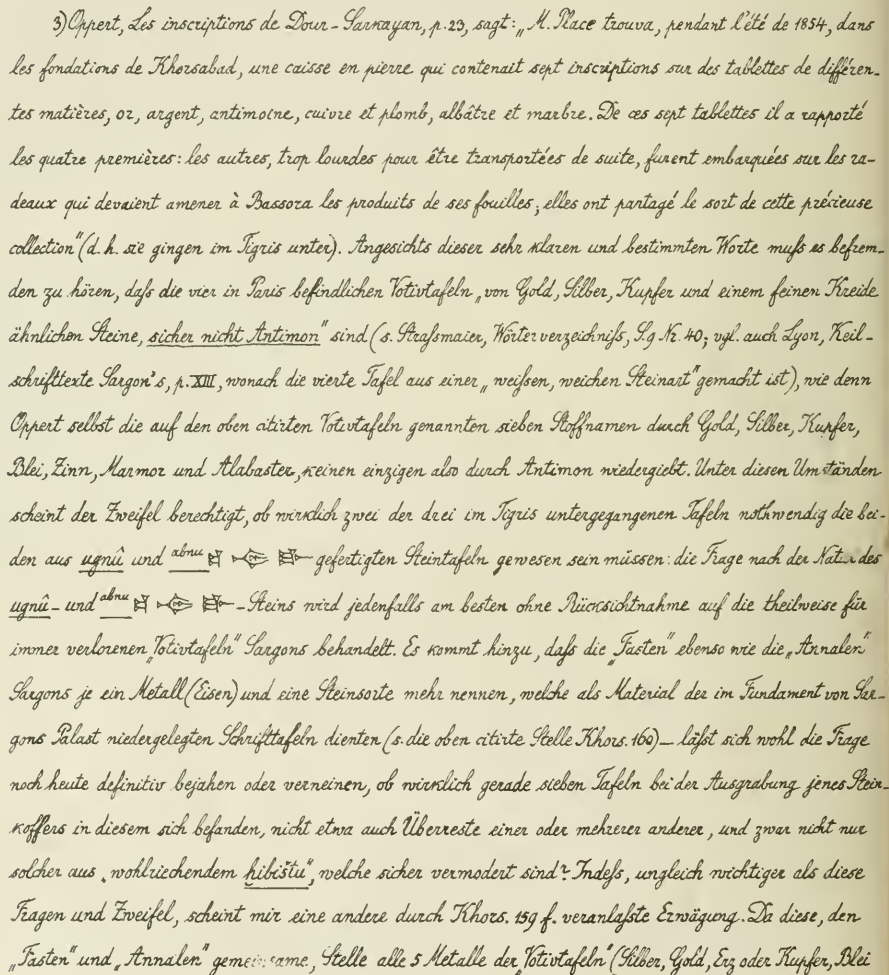 3) Oppert, Les inscriptions de Dour-Sarkayan, p. 23, sagt: „M. Place trouva, pendant l'été de 1854, dans
les fondations de Khorsabad, une caisse en pierre qui contenait sept inscriptions sur des tablettes de différen-
tes matières, or, argent, antimoine, cuivre et plomb, albâtre et marbre. De ces sept tablettes il a rapporté
les quatre premières: les autres, trop lourdes pour être transportées de suite, furent embarquées sur les ra-
deaux qui devaient amener à Bassora les produits de ses fouilles; elles ont partagé le sort de cette précieuse
collection“ (d. h. sie gingen im Tigris unter). Angesichts dieser sehr klaren und bestimmten Worte muſs es befrem-
den zu hören, daſs die vier in Paris befindlichen Votivtafeln „von Gold, Silber, Kupfer und einem feinen Kreide
ähnlichen Steine, sicher nicht Antimon“ sind (s. Straſsmaier, Wörterverzeichniſs, S. 9 Nr. 40; vgl. auch Lyon, Keil-
schrifttexte Sargon's, p. XIII, wonach die vierte Tafel aus einer „weiſsen, weichen Steinart“ gemacht ist), wie denn
Oppert selbst die auf den oben citirten Votivtafeln genannten sieben Stoffnamen durch Gold, Silber, Kupfer,
Blei, Zinn, Marmor und Alabaster, keinen einzigen also durch Antimon wiedergiebt. Unter diesen Umständen
scheint der Zweifel berechtigt, ob wirklich zwei der drei im Tigris untergegangenen Tafeln nothwendig die bei-
den aus ugnû und abnu gefertigten Steintafeln gewesen sein müssen: die Frage nach der Natur des
ugnû- und abnu -Steins wird jedenfalls am besten ohne Rücksichtnahme auf die theilweise für
immer verlorenen „Votivtafeln“ Sargons behandelt. Es kommt hinzu, daſs die „Fasten“ ebenso wie die „Annalen“
Sargons je ein Metall (Eisen) und eine Steinsorte mehr nennen, welche als Material der im Fundament von Sar-
gons Palast niedergelegten Schrifttafeln dienten (s. die oben citirte Stelle Khors. 160) — läſst sich wohl die Frage
noch heute definitiv bejahen oder verneinen, ob wirklich gerade sieben Tafeln bei der Ausgrabung jenes Stein-
koffers in diesem sich befanden, nicht etwa auch Überreste einer oder mehrerer anderer, und zwar nicht nur
solcher aus „wohlriechendem ḫibištu“, welche sicher vermodert sind? Indeſs, ungleich wichtiger als diese
Fragen und Zweifel, scheint mir eine andere durch Khors. 159 f. veranlaſste Erwägung. Da diese, den
„Fasten“ und „Annalen“ gemeinsame, Stelle alle 5 Metalle der „Votivtafeln“ (Silber, Gold, Erz oder Kupfer, Blei